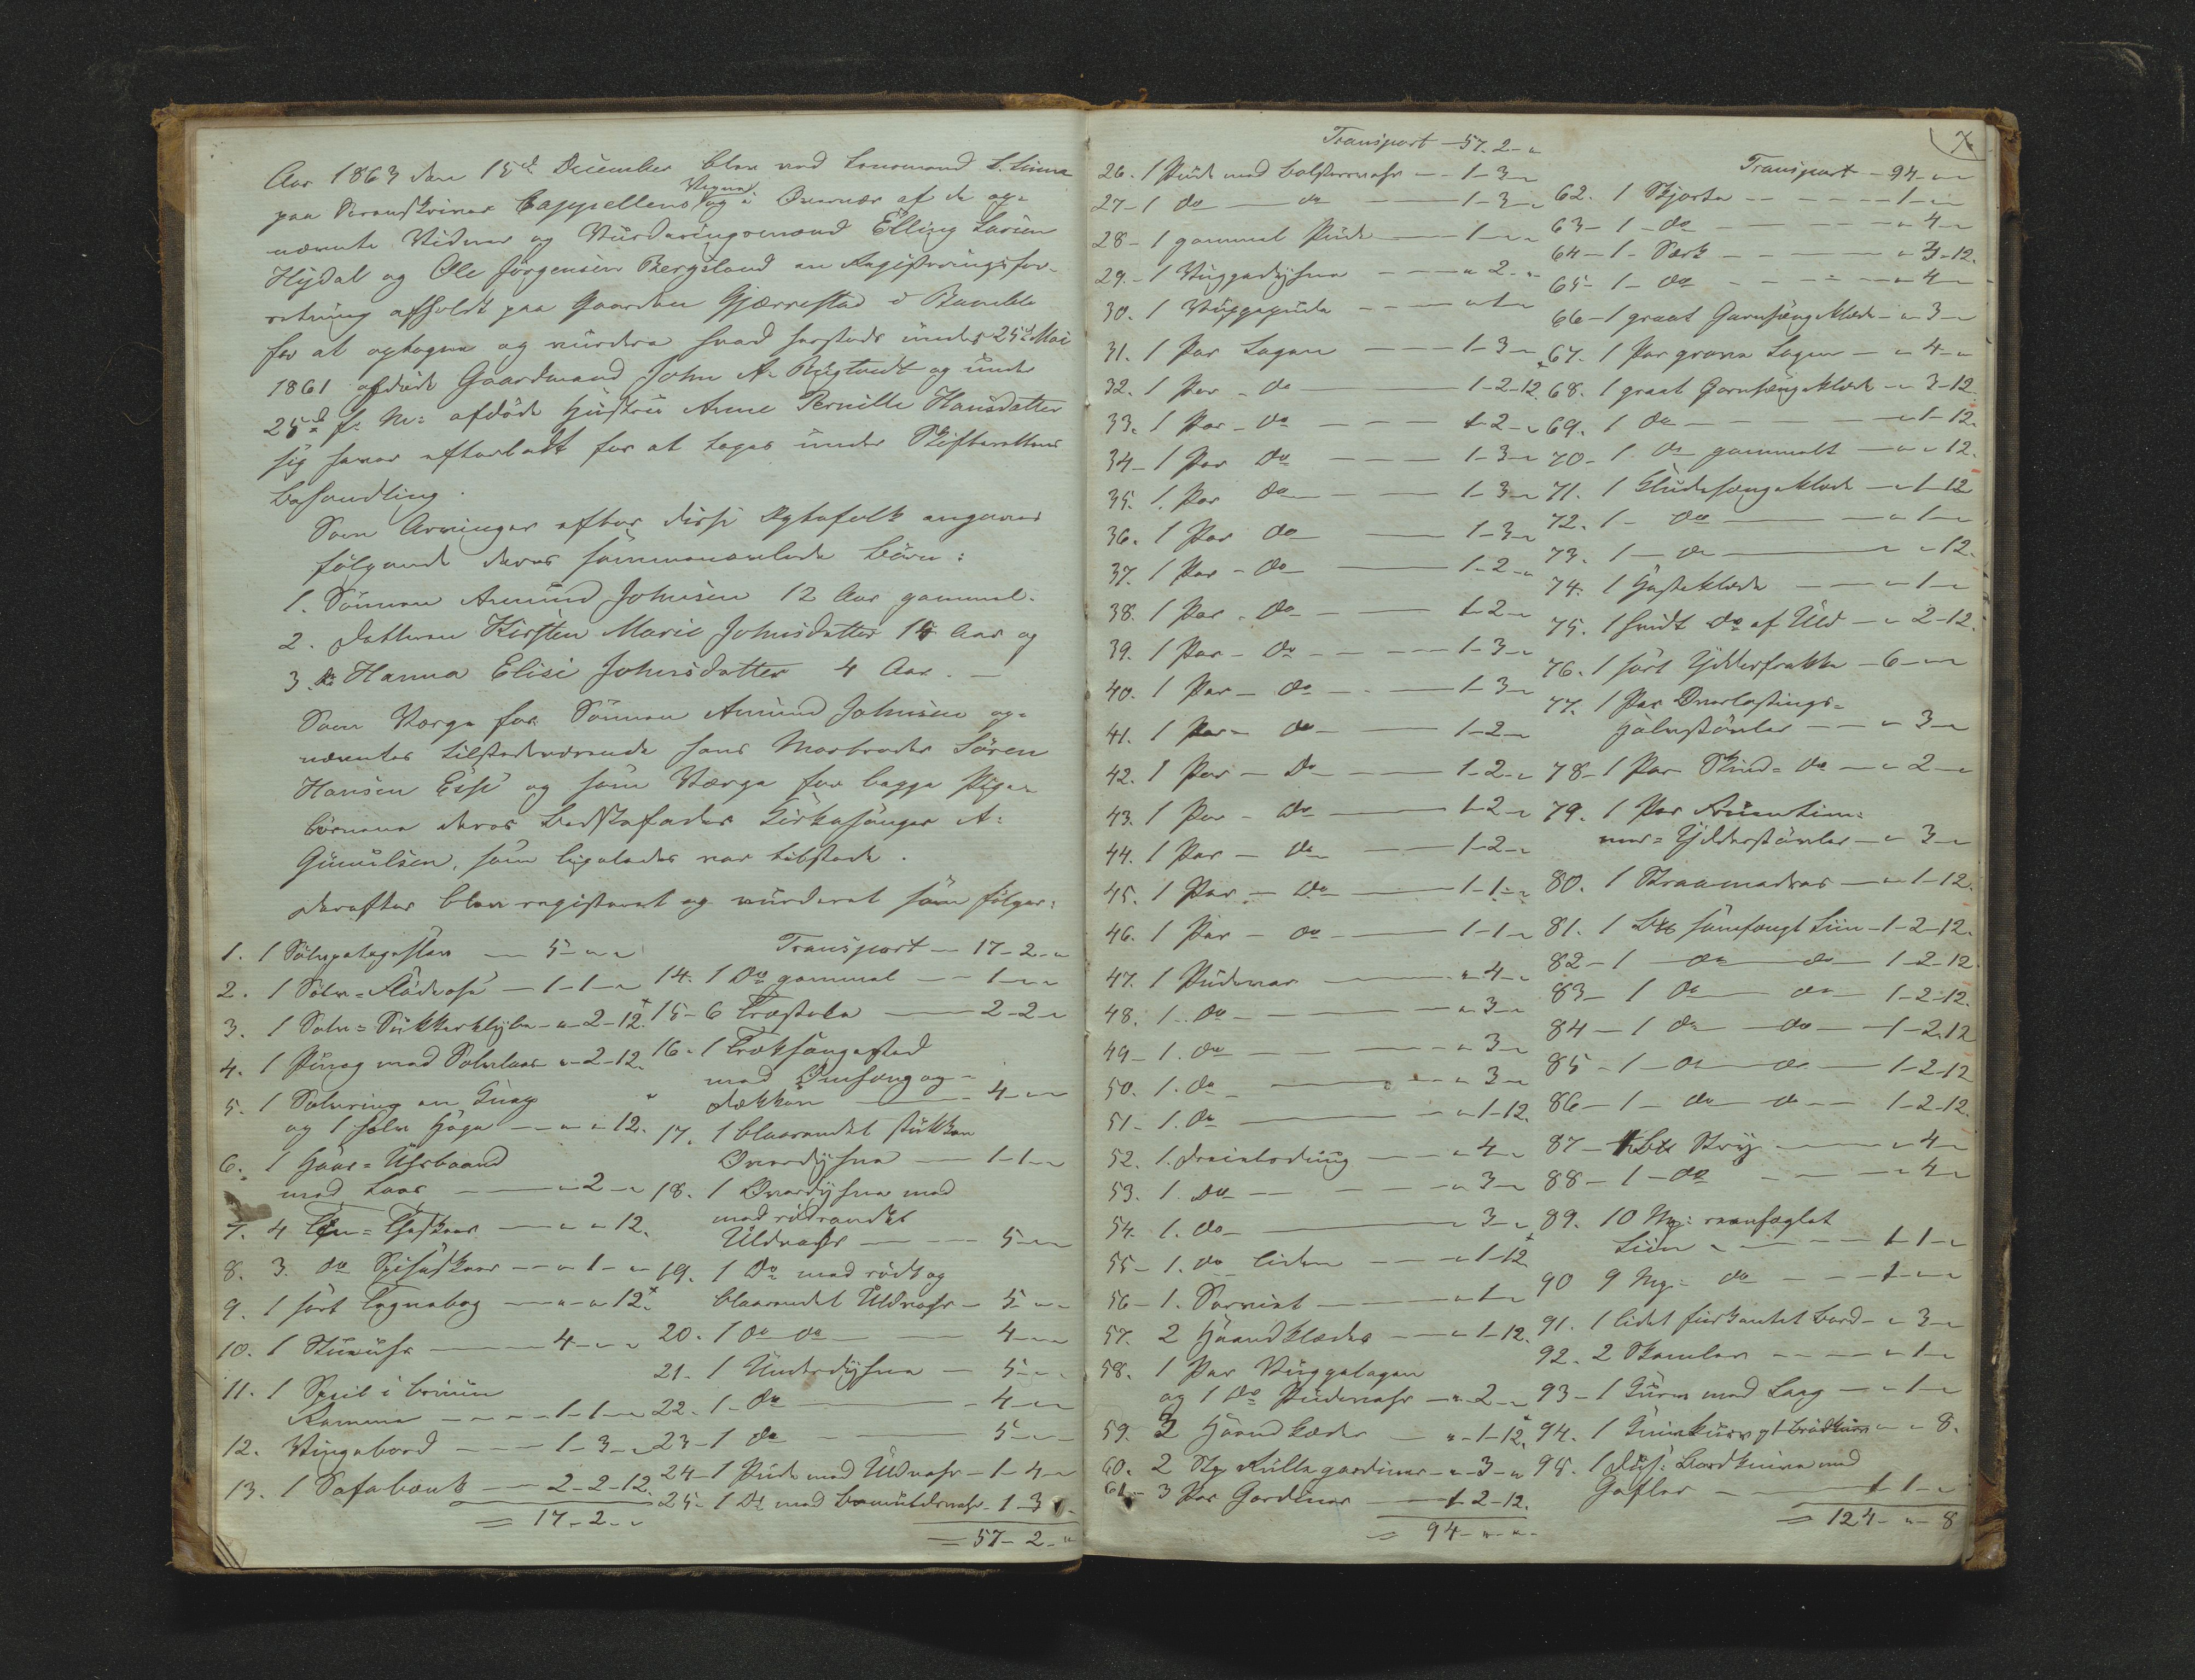 Aar 1863 den 15de December blev ved Lensmand L. Linna
paa Sorenskriver Cappellens Vegne og i Overvær af de op-
nævnte Vidner og Vurderingsmænd Elling Larsen
Hydal og Ole Jörgensen Bergsland en Registreringsfor-
retning afholdt paa Gaarden Gjerrestad i Bamble
for at optegne og vurdere hvad herstæds under 25de Mai
1861 afdøde Gaardmand John A. Rugtvedt og under
25de f. M. afdøde Hustru Anne Pernille Hansdatter
sig haver efterladt for at tages under Skifterettens
Behandling.
Som Arvinger efter disse Egtefolk angaves
følgende deres sammenavlede Børn:
1. Sönnen Amund Johnsen 12 Aar gammel.
2. Datteren Kirsten Marie Johnsdatter 14 Aar og
3. do Hanna Elise Johnsdatter 4 Aar. —
Som Værge for Sønnen Amund Johnsen op-
nævntes tilstedeværende hans Morbroder Sören
Hansen Eese og som Værge for begge Pige-
börnene deres Bedstefader Kirkesanger A.
Gunulsen, som ligeledes var tilstede.
Derefter blev registeret og vurderet som følger:
1. 1 Sölvpotageskee — 5 " "
2. 1 Sölv-Flödeose — 1-1-"
3. 1 Sölv-Sukkerklype - " - 2-12.
4. 1 Pung med Sølvlaas " - 2-12.
5. 1 Sølvring en Knap
og 1 sølv Hægte — " - " 12.
6. 1 Haar-Uhrbaand
med Laas — " - 2 - "
7. 4 Tin-Theskeer — " - " 12.
8. 3 do Spiseskeer — " 1 - "
9. 1 sort Tegnebog — " - " 12.
10. 1 Stueuhr — 4 - " - "
11. 1 Speil i bruun
Ramme — 1-1-"
12. Vingebord — 1-3-"
13. 1 Sofabænk — 2-2-12.
= 17-2-"
Transport — 17-2-"
14. 1 Do gammel — 1 - " - "
15 - 6 Træstole — 2-2-"
16. 1 Træksengested
med Omhæng og
Dækken — 4 - " - "
17. 1 blaarandet stukken
Overdyne — 1-1-"
18. 1 Overdyne med
med rödrandet
Uldvahr — 5 - " - "
19. 1 Do med rödt og
blaarandet Uldvahr - 5 - " - "
20. 1 do do — 4 - " - "
21. 1 Underdyne - 5 - " - "
22. 1 - Do — 4 - " - "
23 - 1 do — 5 - " - "
24 - 1 Pude med Uldvahr - 1-4-"
25 - 1 Do med Bomuldsvahr - 1-3-
= 57-2-"
Transport - 57-2-"
26. 1 Pude med Bolstervahr — 1-3-"
27 - 1 do — do — 1-3-"
28 - 1 gammel Pude — 1 - " - "
29. - 1 Vuggedyne — " 2 - "
30. 1 Vuggepude — " 1 - "
31. 1 Par Lagen — 1-3-"
32. 1 Par - do — 1-2-12.
33. 1 Par - do — 1-2-"
34 - 1 Par do — 1-3-"
35. 1 Par do — 1-3-"
36. 1 Par do — 1-3-"
37. 1 Par - do — 1-2-"
38. 1 Par - do — 1-2-"
39. 1 Par - do — 1-3-"
40. 1 Par - do — 1-3-"
41. 1 Par - do — 1-2-"
42. 1 Par - do — 1-2-"
43. 1 Par - do — 1-2-"
44. 1 Par - do — 1-2-"
45. 1 Par - do — 1-1-"
46. 1 Par - do — 1-1-"
47. 1 Pudevar — " 4 - "
48. 1 do — " 3 - "
49 - 1. do — " 3 - "
50. 1. do — " 3 - "
51 - 1. do — " 1-12.
52. 1. Dreielsdug — " 4 - "
53. 1. do — " 3 - "
54. 1. do — " 3 - "
55 - 1. do liden — " 1-12
56 - 1. Serviet — " 1 - "
57. 2 Haandklæder — " 1-12.
58. 1 Par Vuggelagen
og 1 do Pudevahr — " 2 - "
59. 3 Haandklæder — " 1-12.
60. 2 Stk Rullegardiner - " 3 - "
61 - 3 Par Gardiner — 1-2-12.
= 94 - " - "
Transport - 94 - " - "
62. 1 Skjorte — 1 - "
63 - 1 - do — " 4 - "
64 - 1 - Særk — " 3-12.
65 - 1 - do — " 4 - "
66 - 1 graat Garnsengeklæde - " 3 - "
67. 1 Par grove Lagen — " 4 - "
68. 1 graat Garnsengeklæde - " 3-12.
69. 1 do — " 1-12.
70 - 1. do gammelt — " " 12.
71. 1 Kludesengeklæde — " 1-12
72. 1 - do — " 1 - "
73. 1 — do — " " 12.
74. 1 Hesteklæde — " 1 - "
75. 1 hvidt do af Uld — " 2-12.
76. 1 sort Ydderfrakke - 6 - " - "
77. 1 Par Everlastings-
Halvstövler — " 3 - "
78 - 1 Par Skind-do — " 2 - "
79. 1 Par
Ydderstövler — " 3 - "
80. 1 Straamadras — " 1-12.
81. 1 Bt hamfængt Liin - 1-2-12.
82 - 1 do do — 1-2-12
83 - 1 do do — 1-2-12.
84 - 1 do — do — 1-2-12
85 - 1 - do do — 1-2-12
86 - 1 - do do — 1-2-12.
87 - 1 Bt Stry — " 4 - "
88 - 1 - do — " 4 - "
89. 10 Mrk:
Liin — 1-1-"
90 9 Mrk: do — 1 - " - "
91. 1 lidet fiirkantet Bord - " 3 - "
92. 2 Skamler — " 1 - "
93 - 1 Kurv med Laag — " 1 - "
94. 1 Knivkurv og 1 Brödkurv " " 8.
95. 1 Dus. Bordknive med
Gafler — 1-1-"
= 124 - " - 8